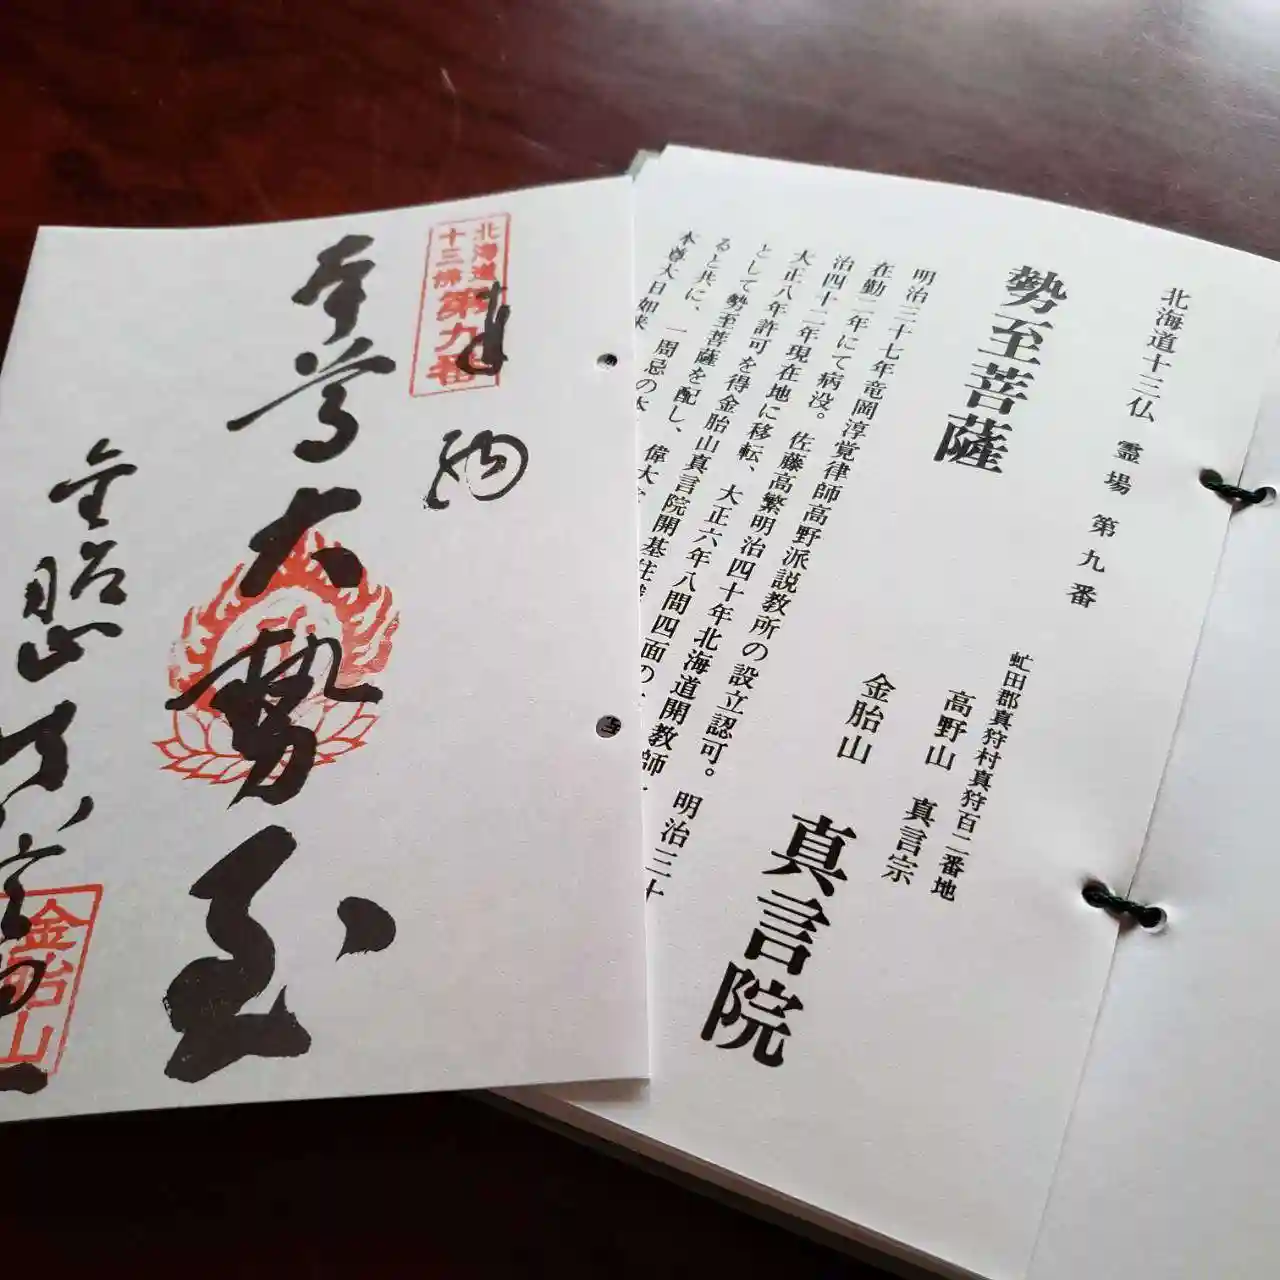 北海道十三仏 霊場 第九番
勢至菩薩
虻田郡真狩村真狩百二番地
高野山 真言宗
金胎山 真言院
明治三十七年竜岡淳覚律師高野派説教所の設立認可。明治三十
在勤二年にて病没。佐藤高繁明治四十年北海道開教師
治四十二年現在地に移転、大正六年八間四面の
大正八年許可を得金胎山真言院開基住職
として勢至菩薩を配し、偉大
ると共に、一周忌の
本尊大日如来
北海道
十三佛
第九番
奉
納
本尊
大勢至
金胎山
金胎山